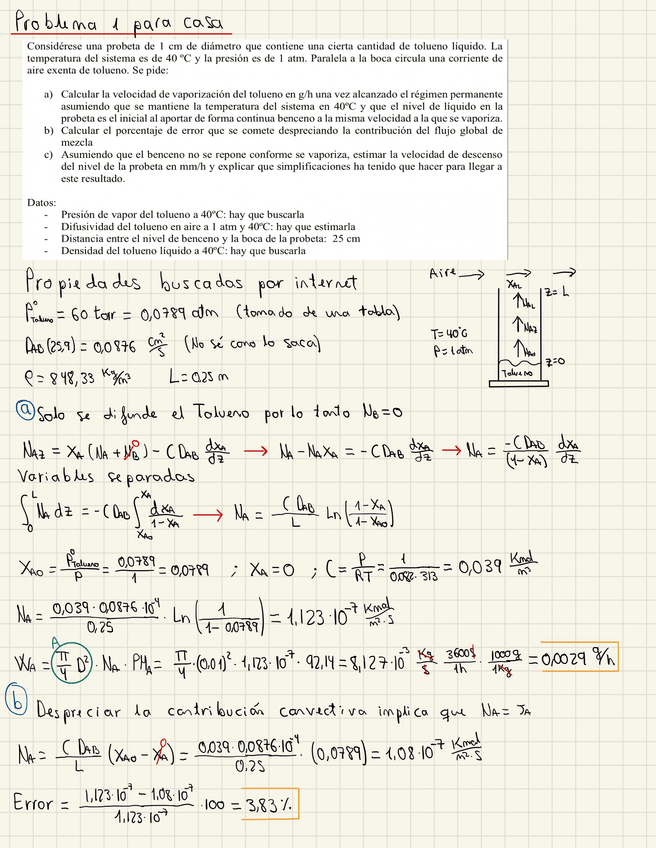 Problema 1 para casa
Considérese una probeta de 1 cm de diámetro que contiene una cierta cantidad de tolueno líquido. La
temperatura del sistema es de 40 ºC y la presión es de 1 atm. Paralela a la boca circula una corriente de
aire exenta de tolueno. Se pide:
a) Calcular la velocidad de vaporización del tolueno en g/h una vez alcanzado el régimen permanente
asumiendo que se mantiene la temperatura del sistema en 40ºC y que el nivel de líquido en la
probeta es el inicial al aportar de forma continua benceno a la misma velocidad a la que se vaporiza.
b) Calcular el porcentaje de error que se comete despreciando la contribución del flujo global de
mezcla
c) Asumiendo que el benceno no se repone conforme se vaporiza, estimar la velocidad de descenso
del nivel de la probeta en mm/h y explicar que simplificaciones ha tenido que hacer para llegar a
este resultado.
Datos:
- Presión de vapor del tolueno a 40ºC: hay que buscarla
- Difusividad del tolueno en aire a 1 atm y 40ºC: hay que estimarla
- Distancia entre el nivel de benceno y la boca de la probeta: 25 cm
- Densidad del tolueno líquido a 40ºC: hay que buscarla
Propiedades buscadas por internet
P°Tolueno = 60 torr = 0,0789 atm (tomado de una tabla)
DAB (25,9) = 0,0876 cm²/s (No sé como lo saca)
ρ = 848,33 Kg/m³ L = 0,25 m
Aire →
XAL
Z = L
NAL
NAZ
NA0
T = 40°C
P = 1 atm
Z=0
Tolueno
a) Solo se difunde el Tolueno por lo tanto NB = 0
NAZ = XA (NA + NB⁰) - C DAB dXA/dZ → NA - NA XA = - C DAB dXA/dZ → NA = -C DAB/(1-XA) dXA/dZ
Variables separadas
∫₀ᴸ NA dZ = - C DAB ∫XA0 XA dXA/1-XA → NA = C DAB/L Ln (1-XA/1-XA0)
XA0 = P°Tolueno/P = 0,0789/1 = 0,0789 ; XA = 0 ; C = P/RT = 1/0,082·313 = 0,039 Kmol/m³
NA = 0,039·0,0876·10⁻⁴/0,25 · Ln (1/1-0,0789) = 1,123·10⁻⁷ Kmol/m²·s
A
WA = (π/4 D²)·NA·PMA = π/4·(0,01)²·1,123·10⁻⁷·92,14 = 8,127·10⁻³ Kg/s 3600s/1h · 1000g/1Kg = 0,0029 g/h
b) Despreciar la contribución convectiva implica que NA = JA
NA = C DAB/L (XA0 - XA⁰) = 0,039·0,0876·10⁻⁴/0,25 · (0,0789) = 1,08·10⁻⁷ Kmol/m²·s
Error = 1,123·10⁻⁷ - 1,08·10⁻⁷/1,123·10⁻⁷ · 100 = 3,83 %